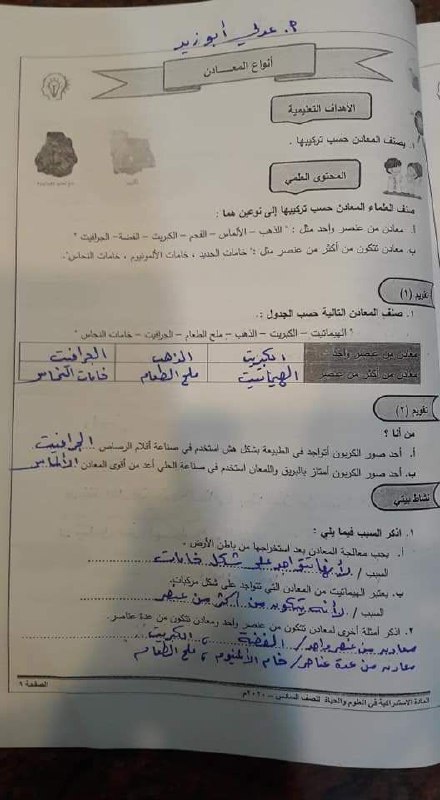 م. عدلي أبو زيد
أنواع المعادن
الأهداف التعليمية
١. يصنف المعادن حسب تركيبها .
المحتوى العلمي
صنف العلماء المعادن حسب تركيبها إلى نوعين هما :
أ. معادن من عنصر واحد مثل : " الذهب – الألماس – الفحم – الكبريت – الفضة – الجرافيت "
ب. معادن تتكون من أكثر من عنصر مثل :" خامات الحديد ، خامات الألمونيوم ، خامات النحاس".
تقويم (١)
١. صنف المعادن التالية حسب الجدول :.
" الهيماتيت – الكبريت – الذهب – ملح الطعام – الجرافيت – خامات النحاس "
معادن من عنصر واحد الكبريت الذهب الجرافيت
معادن من أكثر من عنصر الهيماتيت ملح الطعام خامات النحاس
تقويم (٢)
من أنا ؟
أ. أحد صور الكربون أتواجد في الطبيعة بشكل هش استخدم في صناعة أقلام الرصاص الجرافيت
ب. أحد صور الكربون أمتاز بالبريق واللمعان استخدم في صناعة الحلي أعد من أقوى المعادن الألماس
نشاط بيتي
١. اذكر السبب فيما يلي :
أ. يجب معالجة المعادن بعد استخراجها من باطن الأرض.
السبب / لأنها تتواجد على شكل خامات
ب. يعتبر الهيماتيت من المعادن التي تتواجد على شكل مركبات.
السبب / لأنه يتكون من أكثر من عنصر
٢. اذكر أمثلة أخرى لمعادن تتكون من عنصر واحد ومعادن تتكون من عدة عناصر.
معادن من عنصر واحد / الفضة ، الكبريت
معادن من عدة عناصر / خام الألمنيوم ، ملح الطعام
المادة الاستدراكية في العلوم والحياة للصف السادس – ٢٠٢٠م
الصفحة ٩